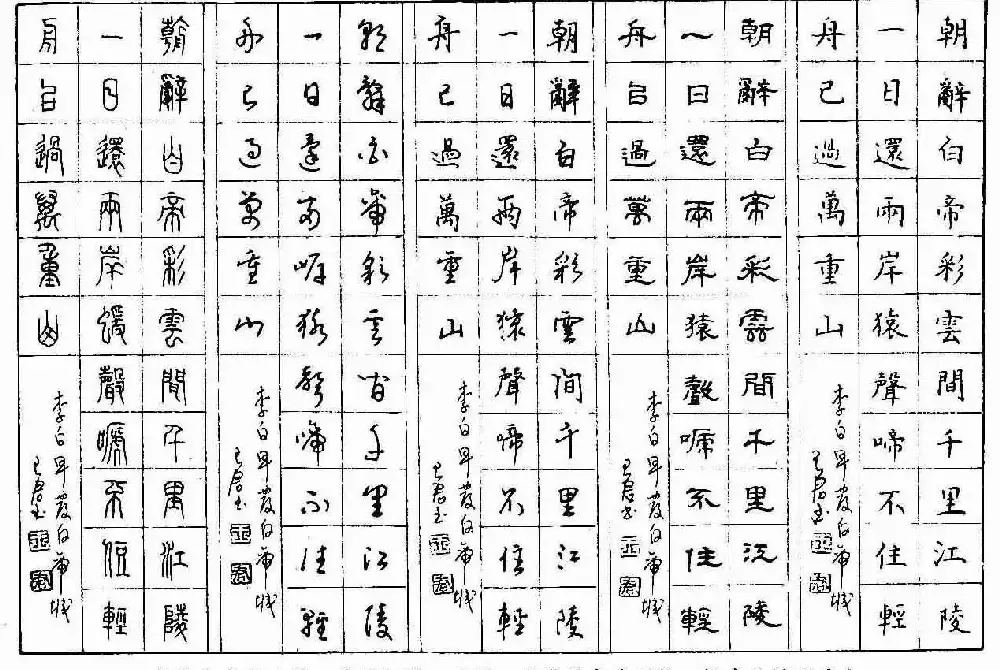 朝辭白帝彩雲間千里江陵
一日還兩岸猿聲啼不住輕
舟已過萬重山
李白早發白帝城
書
朝辭白帝彩雲間千里江陵
一日還兩岸猿聲啼不住輕
舟已過萬重山
李白早發白帝城
書
朝辭白帝彩雲間千里江陵
一日還兩岸猿聲啼不住輕
舟已過萬重山
李白早發白帝城
書
朝辭白帝彩雲間千里江陵
一日還兩岸猿聲啼不住輕
舟已過萬重山
李白早發白帝城
書
朝辭白帝彩雲間千里江陵
一日還兩岸猿聲啼不住輕
舟已過萬重山
李白早發白帝城
書